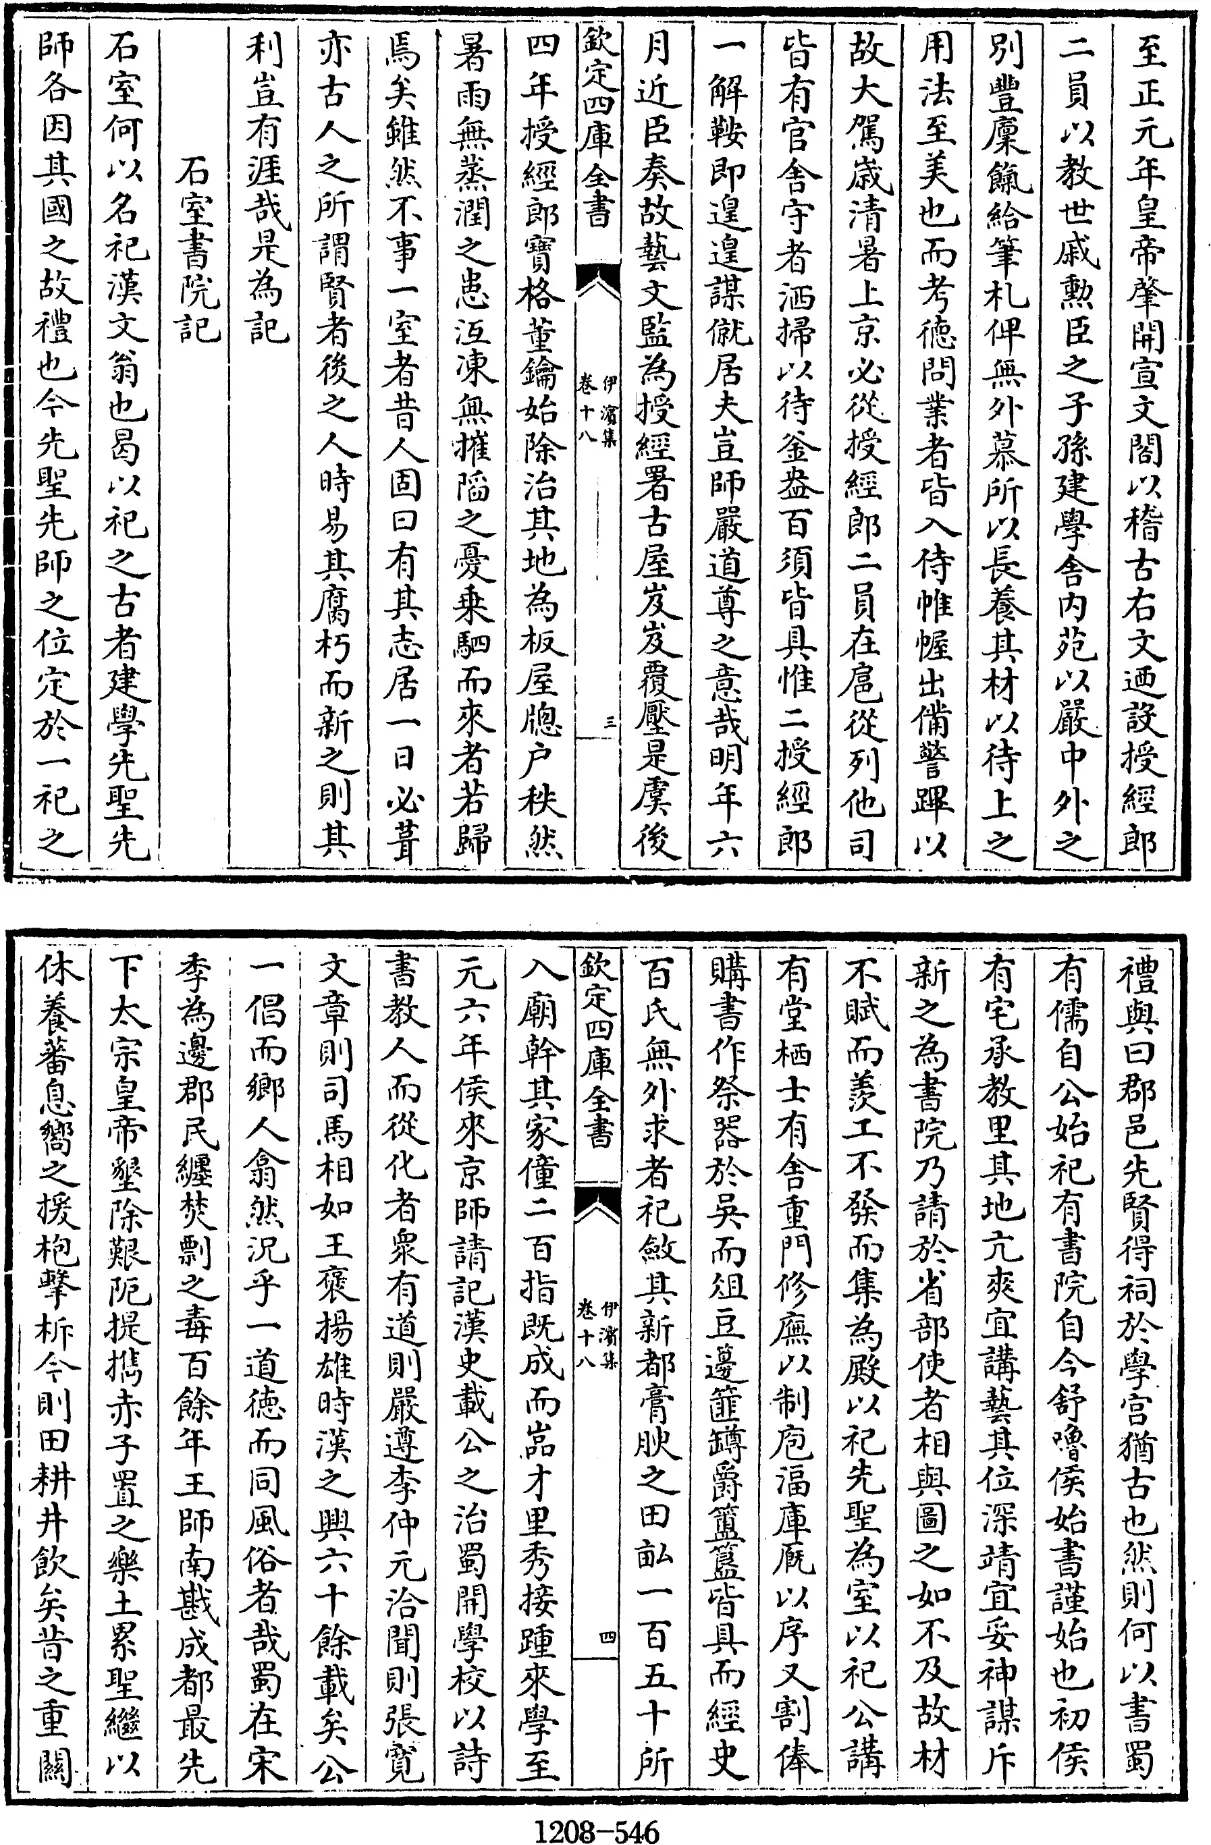 至正元年皇帝肇開宣文閣以稽古右文迺設授經郎
二員以教世戚勲臣之子孫建學舍内苑以嚴中外之
別豐廩餼給筆札俾無外慕所以長養其材以待上之
用法至美也而考徳問業者皆入侍帷幄出備警蹕以
故大駕歲清暑上京必從授經郎二員在扈從列他司
皆有官舍守者洒掃以待釜盎百須皆具惟二授經郎
一解鞍即遑遑謀僦居夫豈師嚴道尊之意哉明年六
月近臣奏故藝文監為授經署古屋岌岌覆壓是虞後
欽定四庫全書
伊濱集
卷十八
三
四年授經郎寶格董鑰始除治其地為板屋牕户秩然
暑雨無蒸潤之患沍凍無摧陷之憂乗駟而來者若歸
焉矣雖然不事一室者昔人固曰有其志居一日必葺
亦古人之所謂賢者後之人時易其腐朽而新之則其
利豈有涯哉是為記
石室書院記
石室何以名祀漢文翁也曷以祀之古者建學先聖先
師各因其國之故禮也今先聖先師之位定於一祀之
禮與曰郡邑先賢得祠於學宫猶古也然則何以書蜀
有儒自公始祀有書院自今舒嚕侯始書謹始也初侯
有宅承教里其地亢爽宜講藝其位深靖宜妥神謀斥
新之為書院乃請於省部使者相與圖之如不及故材
不賦而羨工不發而集為殿以祀先聖為室以祀公講
有堂栖士有舍重門修廡以制庖湢庫厩以序又割俸
購書作祭器於吳而俎豆籩篚罇爵簠簋皆具而經史
百氏無外求者祀斂其新都膏腴之田畝一百五十所
欽定四庫全書
伊濱集
卷十八
四
入廟幹其家僮二百指既成而嵓才里秀接踵來學至
元六年侯來京師請記漢史載公之治蜀開學校以詩
書教人而從化者衆有道則嚴遵李仲元洽聞則張寛
文章則司馬相如王褒揚雄時漢之興六十餘載矣公
一倡而鄉人翕然況乎一道徳而同風俗者哉蜀在宋
季為邊郡民纒焚剽之毒百餘年王師南戡成都最先
下太宗皇帝墾除艱阨提携赤子置之樂土累聖繼以
休養蕃息嚮之援枹擊柝今則田耕井飲矣昔之重闗
1208-546